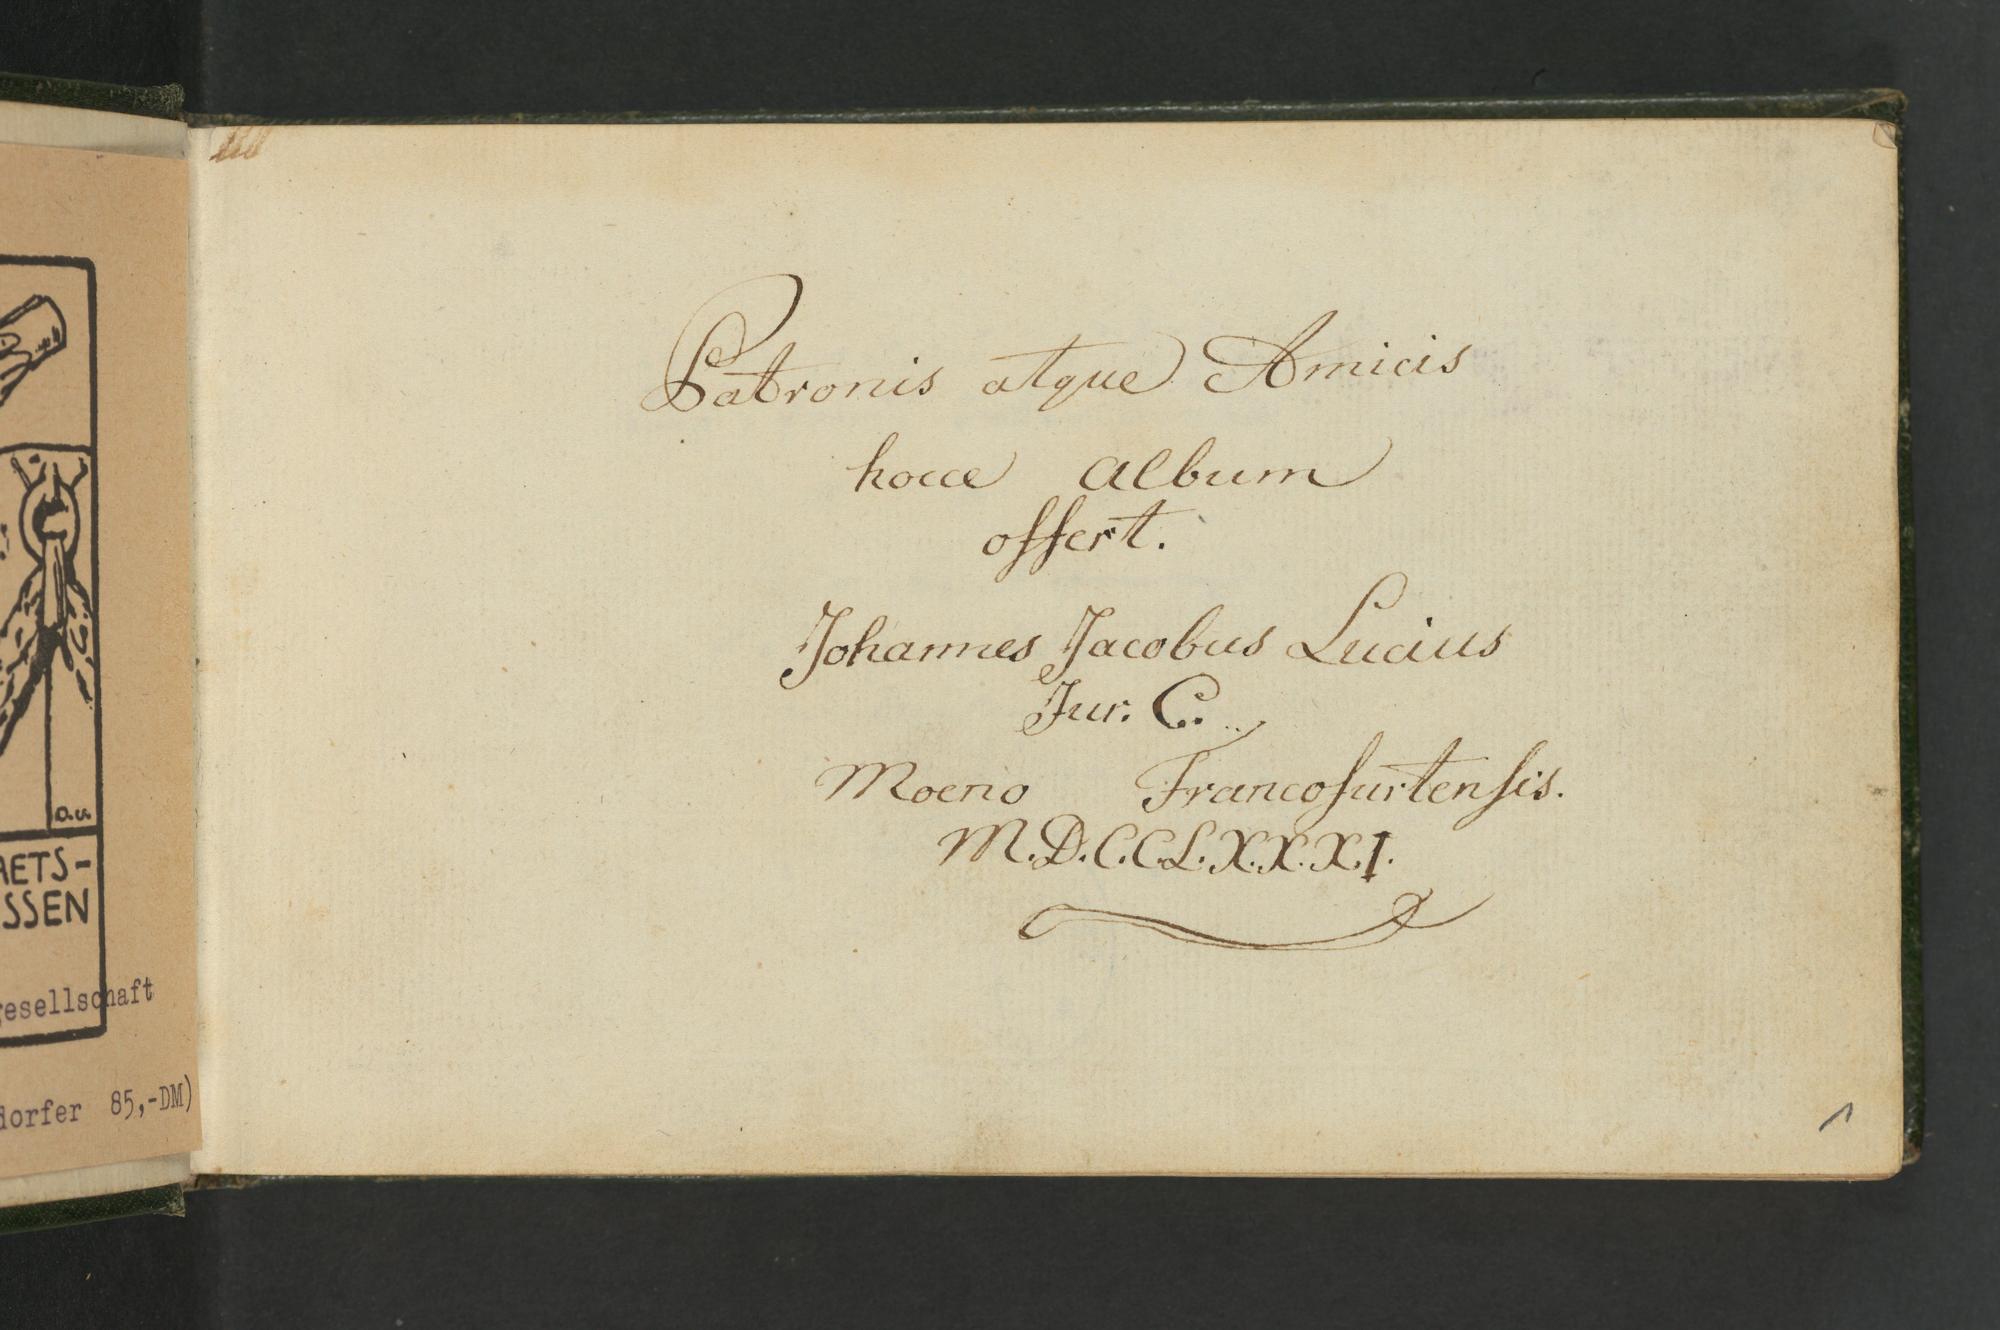 AETS-
SSEN
gesellschaft
dorfer 85,-DM)
Patronis atque Amicis
hocce Album
offert.
Johannes Jacobus Lucius
Jur. C.
Moeno Francofurtensis.
M.D.C.C.L.X.X.X.I.
1